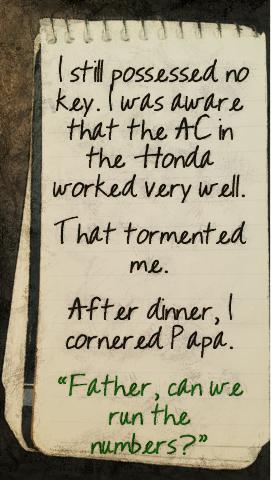 I still possessed no
key. I was aware
that the AC in
the Honda
worked very well.
That tormented
me.
After dinner, I
cornered Papa.
“Father, can we
run the
numbers?”